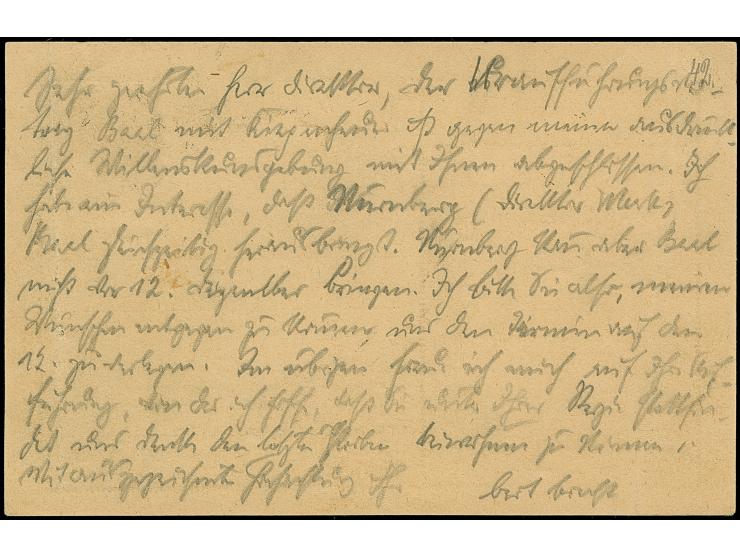 Sehr geehrter Herr Direktor, der Uraufführungsver- 42
trag Baal mit Kiepenheuer ist gegen meine ausdrück-
liche Willenskundgebung mit Ihnen abgeschlossen. Ich
habe ein Interesse, daß Nürnberg (Direktor
Baal gleichzeitig herausbringt. Nürnberg kann aber Baal
nicht vor 12. Dezember bringen. Ich bitte Sie also, meinen
Wünschen entgegen zu kommen und den Termin auf den
12. zu verlegen. Im übrigen freue ich mich auf Ihre Auf-
führung, von der ich hoffe, daß sie unter Ihrer Regie stattfin-
det und denke den letzten Proben beiwohnen zu können.
Mit ausgezeichneter Hochachtung Ihr bert brecht